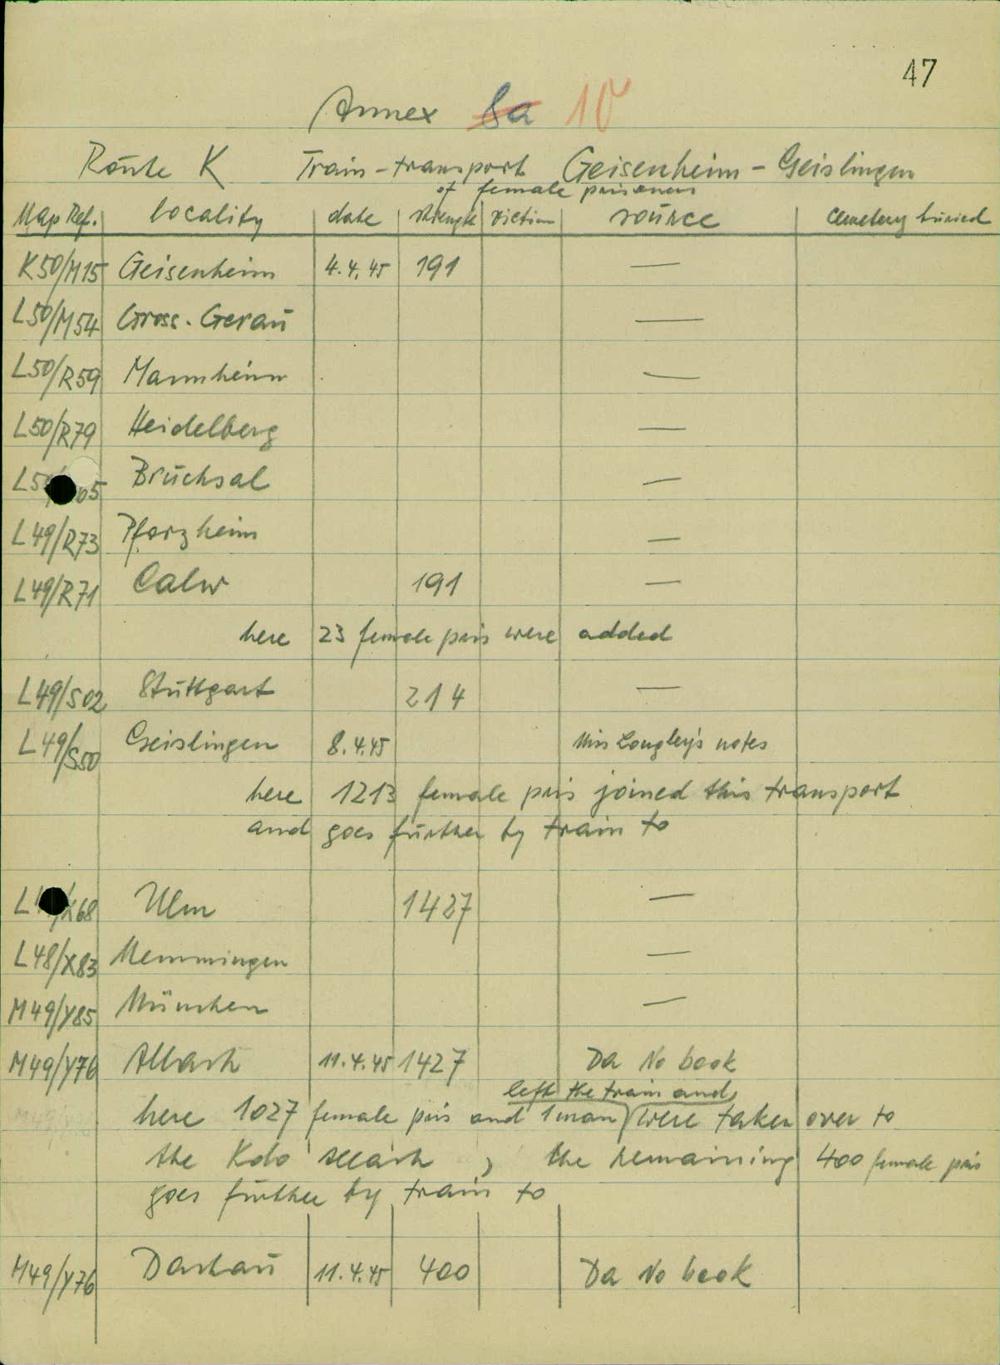 47
Annex 8a 10
Route K Train-transport Geisenheim - Geislingen
of female prisoners
Map Ref. locality date strength victim source cemetery buried
K50/M15 Geisenheim 4.4.45 191 —
L50/M54 Gross-Gerau —
L50/R59 Mannheim —
L50/R79 Heidelberg —
Bruchsal —
L49/R73 Pforzheim —
L49/R71 Calw 191 —
here 23 female pris were added
L49/S02 Stuttgart 214 —
L49/S50 Geislingen 8.4.45 Miss Longley's notes
here 1213 female pris joined this transport
and goes further by train to
Ulm 1427 —
L48/X83 Memmingen —
M49/Y85 München —
M49/Y76 Allach 11.4.45 1427 Da No book
left the train and
here 1027 female pris and 1 man were taken over to
the Kdo Allach, the remaining 400 female pris
goes further by train to
M49/Y76 Dachau 11.4.45 400 Da No book